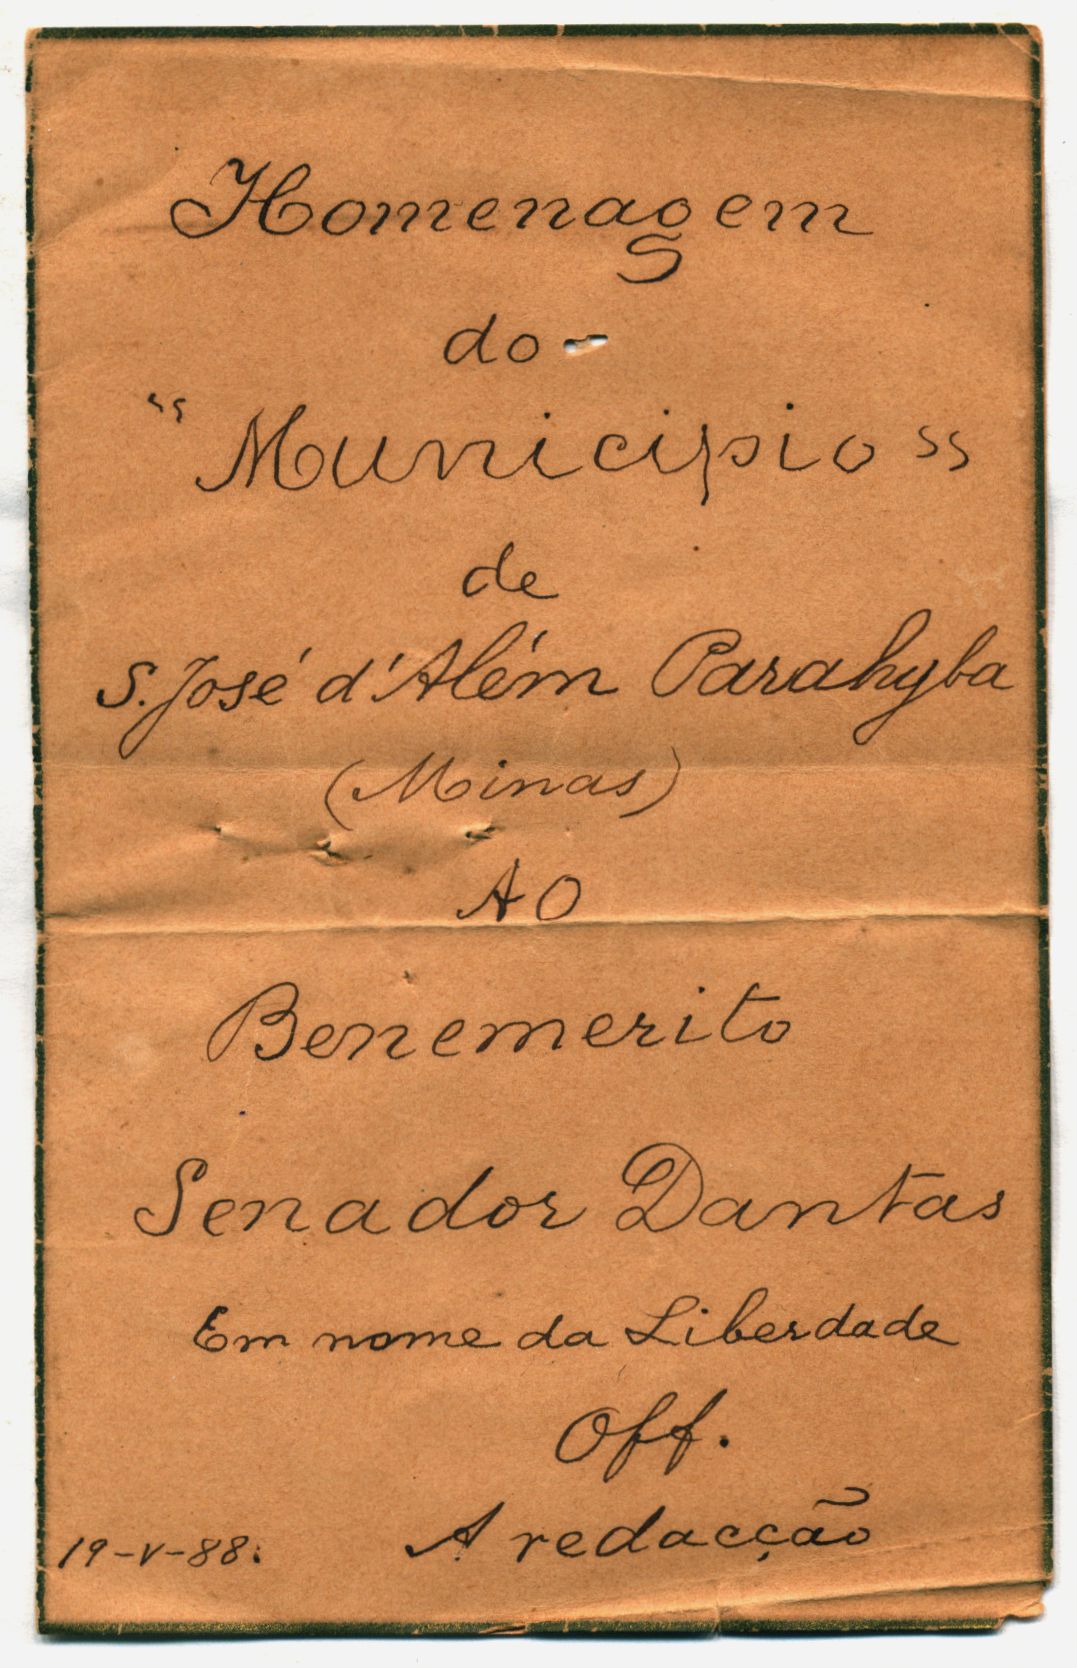 Homenagem
do
"Municipio"
de
S. José d'Além Parahyba
(Minas)
AO
Benemerito
Senador Dantas
Em nome da Liberdade
Off.
A redacção
19-V-88.